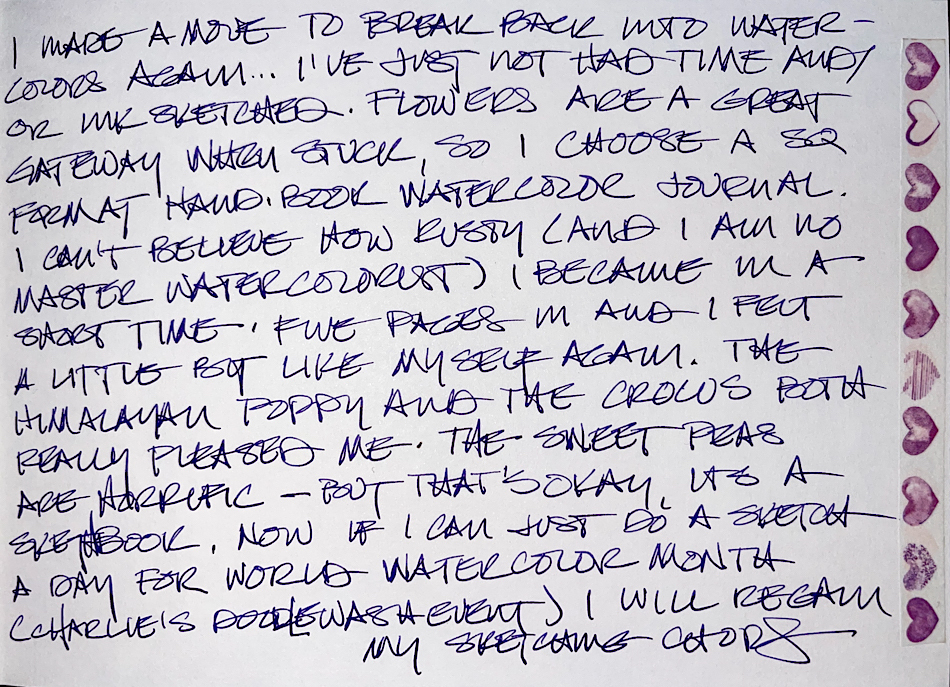 I MADE A MOVE TO BREAK BACK INTO WATER-
COLORS AGAIN... I'VE JUST NOT HAD TIME AND/
OR INK SKETCHED. FLOWERS ARE A GREAT
GATEWAY WHEN STUCK, SO I CHOOSE A SQ
FORMAT HAND.BOOK WATERCOLOR JOURNAL.
I CAN'T BELIEVE HOW RUSTY (AND I AM NO
MASTER WATERCOLORIST) I BECAME IN A
SHORT TIME. FIVE PAGES IN AND I FELT
A LITTLE BIT LIKE MYSELF AGAIN. THE
HIMALAYAN POPPY AND THE CROCUS BOTH
REALLY PLEASED ME. THE SWEET PEAS
ARE HORRIFIC - BUT THAT'S OKAY, IT'S A
SKETCHBOOK. NOW IF I CAN JUST DO A SKETCH
A DAY FOR WORLD WATERCOLOR MONTH
(CHARLIE'S DOODLEWASH EVENT) I WILL REGAIN
MY SKETCHING CHOPS